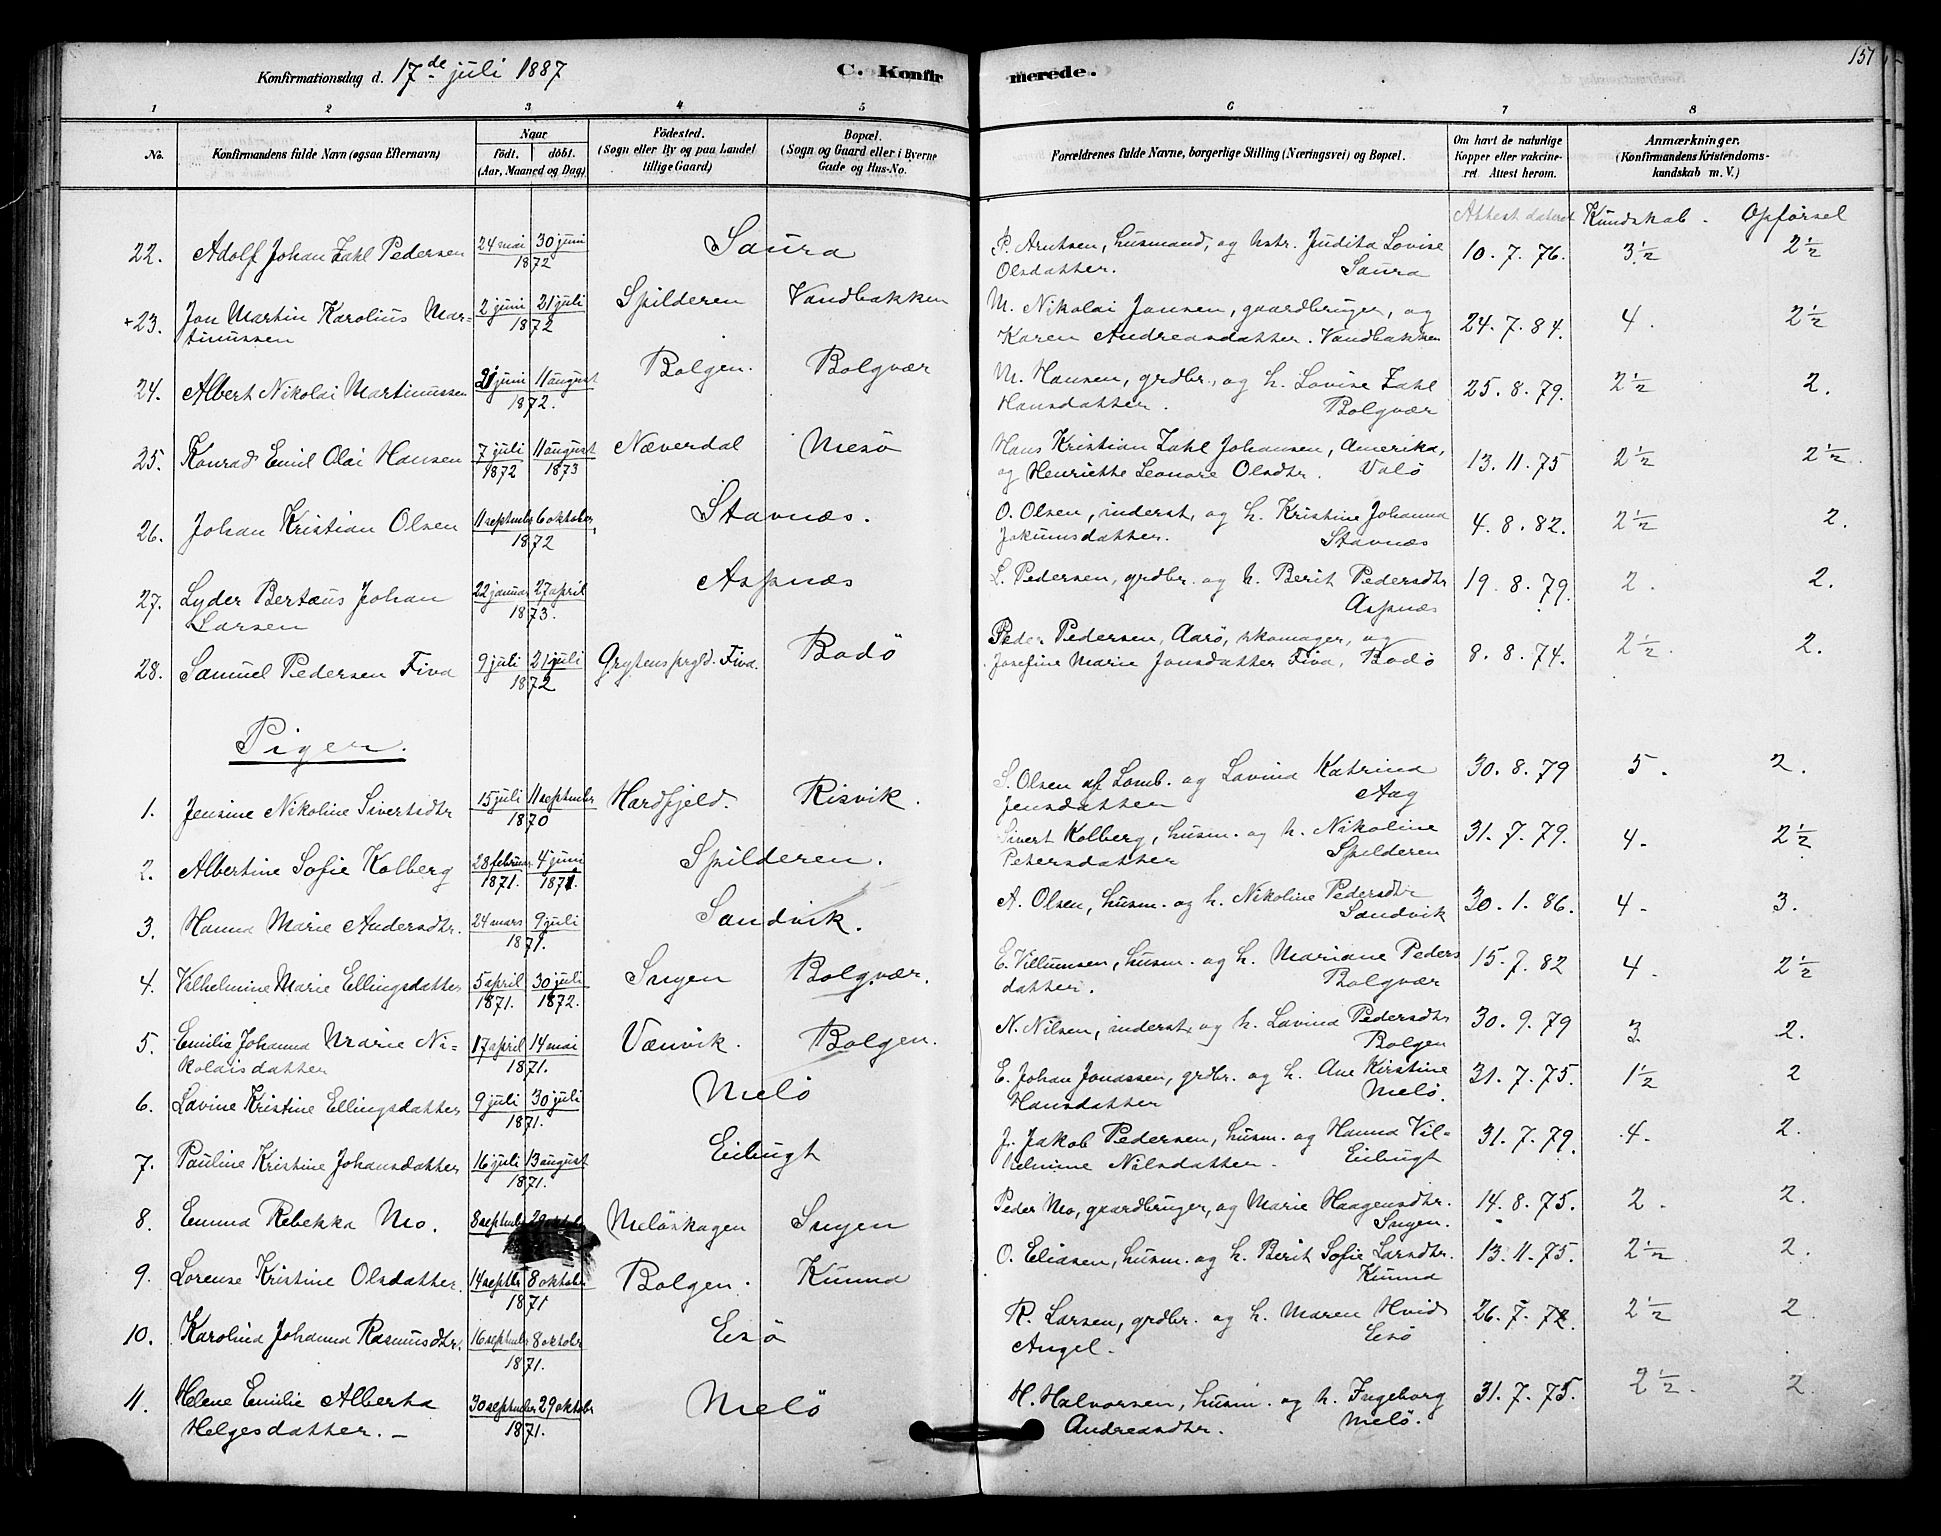 Konfirmationsdag d. 17de juli 1887 C. Konfirmerede. 151
1 2 3 4 5 6 7 8
No. Konfirmandens fulde Navn (ogsaa Efternavn) Naar født. døbt. (Aar, Maaned og Dag) Fødested. (Sogn eller By og paa Landet tillige Gaard) Bopæl. (Sogn og Gaard eller i Byerne Gade og Hus-No. Forældrenes fulde Navne, borgerlige Stilling (Næringsvei) og Bopæl. Om havt de naturlige Kopper eller vakcineret. Attest herom. Anmærkninger. (Konfirmandens Kristendomskundskab m. V.)
Attest dateret Kundskab. Opførsel
22. Adolf Johan Zahl Pedersen 24 mai 30 juni 1872 Saura P. Arntsen, husmand, og hstr. Judita Lovise 10.7.76. 3½ 2½
Olsdatter. Saura
+23. Jon Martin Karolius Mar- 2 juni 21 juli 1872 Spilderen Vandbakken M. Nikolai Jonsen, gaardbruger, og 24.7.84. 4. 2½
tinussen Karen Andreasdatter. Vandbakken
24. Albert Nikolai Martinussen 21 juni 11 august 1872. Bolgen. Bolgvær M. Hansen, grdbr., og h. Lovise Zahl 25.8.79. 2½ 2.
Hansdatter. Bolgvær
25. Konrad Emil Olai Hansen 7 juli 1872 11 august 1873 Næverdal Mesö Hans Kristian Zahl Johansen, Amerika, 13.11.75 2½ 2½.
og Henriette Leonore Olsdtr. Valö
26. Johan Kristian Olsen 11 september 6 oktober 1872 Stavnæs. O. Olsen, inderst, og h. Kristine Johanna 4.8.82. 2½ 2.
Jakumsdatter. Stavnæs
27. Lyder Bertæus Johan 22 januar 27 april 1873. Aspnæs L. Pedersen, grdbr. og h. Berit Pedersdtr 19.8.79. 2. 2.
Larsen Aspnæs
28. Samuel Pedersen Fiva 9 juli 21 juli 1872 Grytens prgld. Fiva. Bodö Peder Pedersen, Aarö, skomager, og 8.8.74. 2½. 2.
Josefine Marie Jonsdatter Fiva, Bodö
Piger.
1. Jensine Nikoline Sivertsdtr 15 juli 11 september 1870 Hardfjeld. Risvik. S. Olsen af Lomb. og Lavina Katrina 30.8.79 5. 2.
Jensdatter Aag
2. Albertine Sofie Kolberg 28 februar 1871. 4 juni 1871. Spilderen. Sivert Kolberg, husm. og h. Nikoline 31.7.79. 4. 2½
Petersdatter Spilderen
3. Hanna Marie Andersdtr. 24 mars 9 juli 1871. Sandvik. A. Olsen, husm. og h. Nikoline Pedersdtr 30.1.86. 4. 3.
Sandvik
4. Vilhelmine Marie Ellingsdatter 5 april 1871. 30 juli 1872. Snyen Bolgvær. E. Villumsen, husm. og h. Mariane Peders 15.7.82 4. 2½
datter. Bolgvær
5. Emilie Johanna Marie Ni- 17 april 14 mai 1871. Vænvik. Bolgen. N. Nilsen, inderst, og h. Lavina Pedersdtr 30.9.79 3. 2.
kolaisdatter Bolgen
6. Lavine Kristine Ellingsdatter 9 juli 30 juli 1871. Melö E. Johan Jonassen, grdbr. og h. Ane Kirstine 31.7.75. 1½ 2
Hansdatter Melö.
7. Pauline Kristine Johansdatter 16 juli 13 august 1871. Eilingt J. Jakob Pedersen, husm. og Hanna Vil- 31.7.79. 4. 2.
helmine Nilsdatter. Eilingt
8. Emma Rebekka Mo. 8 septmbr oktobr Melöskagen Snyen Peder Mo, gaardbruger, og Marie Haagensdtr. 14.8.75. 2. 2.
Snyen.
9. Lorense Kristine Olsdatter. 14 septbr 8 oktobr 1871 Bolgen. Kunna O. Eliasen, husm. og h. Berit Sofie Larsdtr. 13.11.75. 2½ 2.
Kunna
10. Karolina Johanna Rasmusdtr. 16 septmbr 8 oktobr 1871. Esö R. Larsen, grdbr. og h. Maren Hvid 26.7.72. 2½ 2
Angel. Esö
11. Helene Emilie Alberta 30 septmber 29 oktobr 1871. Melö H. Halvorsen, husm. og h. Ingeborg 31.7.75. 2½. 2
Helgesdatter. – Andreasdtr. Melö.